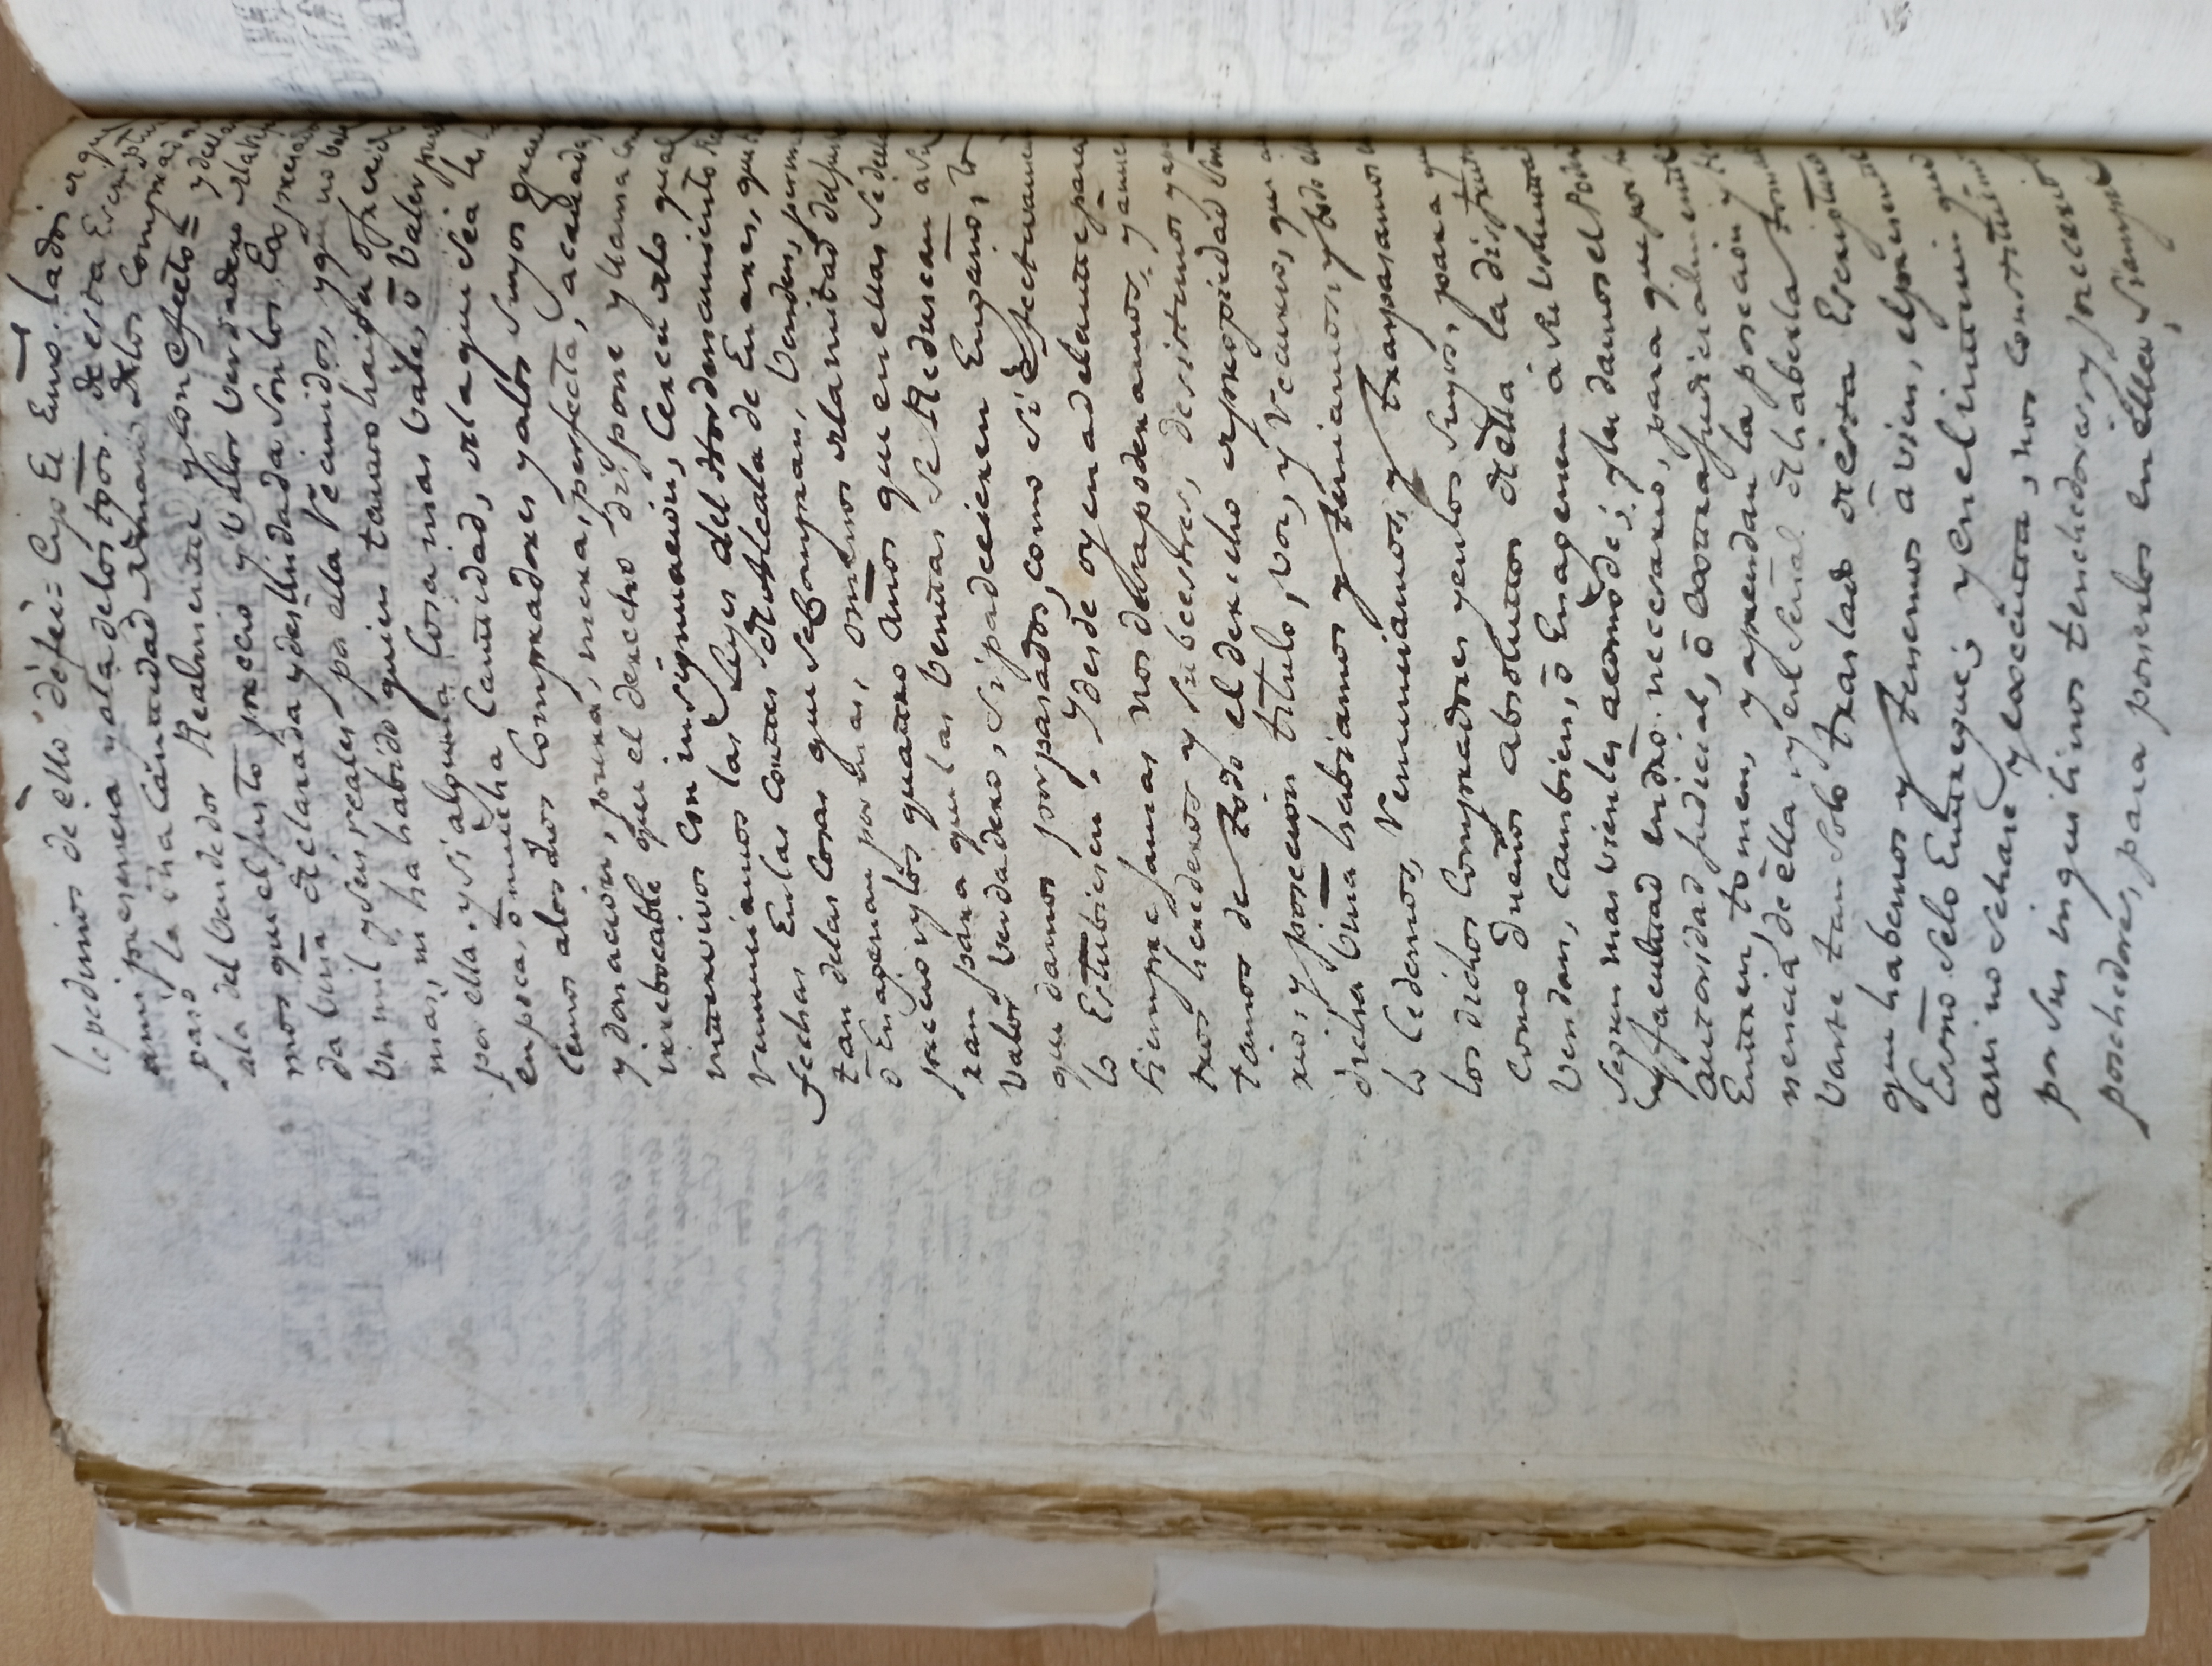 le pedimos de ello dèfeè= Cyo El Essno. la doi de que
a mi presencia y a la de los tgos. de esta Escriptura
pasó la dha Cantidad de mano de los Comprador
a la del Vendedor Realmente y con efecto= y decla
mos que el justo precio y Valor Verdadero de la
da Viña declarada y deslindada son los Expresados
Un mil y seis reales por ella Recividos, y que no vale
mas, ni ha habido quien tanto haiga ofrecido
por ella. y si alguna Cosa mas Vale, ō Valer puede
en poca, ō mucha Cantidad, de la que sea les
cemos a los dhos Compradores y a los Suyos gracia
y donacion, pura, mera, perfecta, acavada,
irrebocable que el derecho dispone y llama
intervivos con insignuacion, Cerca de lo qual
renunciamos las Leyes del Hordenamiento
fechas En las Cortes de Alcala de Enares, que
tan de las Cosas que se Compran, Venden, permu
ō Enagenan por mas, o menos de la mitad del jus
precio y los quattro años que en ellas se decla
ran para que las Ventas se Reduscan á su
Valor Verdadero, si padecieren Engaño, lo
que damos por pasados, como si efectivamen
lo Estubiesen. Y desde oy en adelante para
siempre jamas nos desapoderamos, y á nues
tros herederos y subcesores, desistimos y apar
tamos de todo el derecho de propiedad Seño
rio, y posecion titulo, vos, y recurso, que a
dicha Viña habiamos y teniamos, y todo ello
lo Cedemos, Renunciamos, y traspasamos en
los dichos Compradores y en los Suyos, para que
como dueños absoluttos de ella la disfruten
Vendan, cambien, ō Enagenen á su Volunta
segun mas vien les acomòde; y les damos el Poder
y facultad en dro. necesario, para que por su
autoridad Judicial, ō Extrajudicialmente
Entren, tomen, y aprendan la posecion y te
nencia de ella, y en señal de haberla tomado
Vaste tan solo traslado de esta Escriptura
que habemos y tenemos á vien, el presente
Essno se lo Entregue; y en el interin que
assi no se hase y execcutta, nos constituimos
por sus inquilinos tenehedores, y precario
posehedores, para ponerlos en ella, siempre